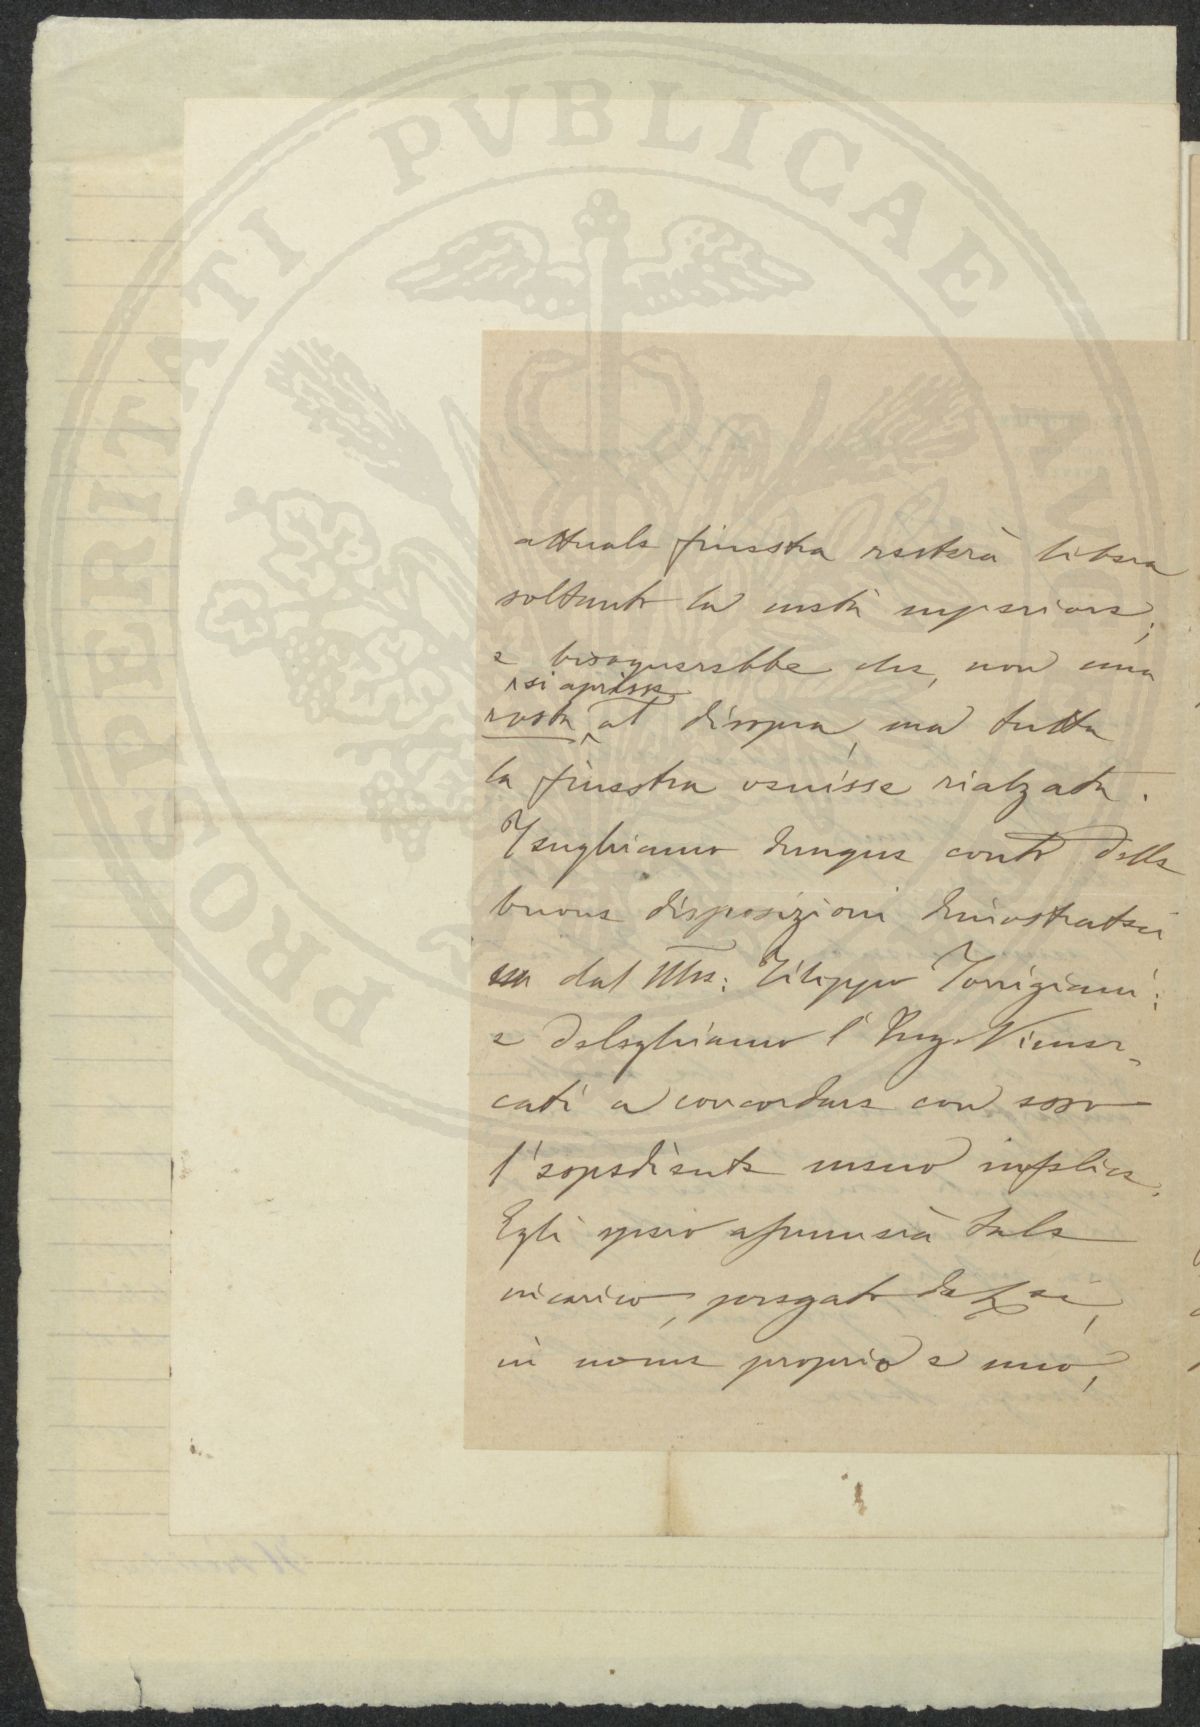 PROSPERITATI PVBLICAE AVG
attuale finestra resterà libera
soltanto la metà superiore;
e bisognerebbe che, non una
si aprisse
rosta al disopra, ma tutta
la finestra venisse rialzata.
Tenghiamo dunque conto delle
buone disposizioni dimostrateci
dal Mse: Filippo Torrigiani;
e deleghiamo l'Ing. Vimer-
cati a concordare con esso
l'espediente meno infelice.
Egli spero assumerà tale
incarico, pregato da Lei,
in nome proprio e mio,